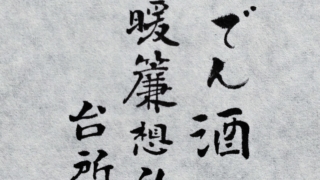 でん酒
暖簾想
台所